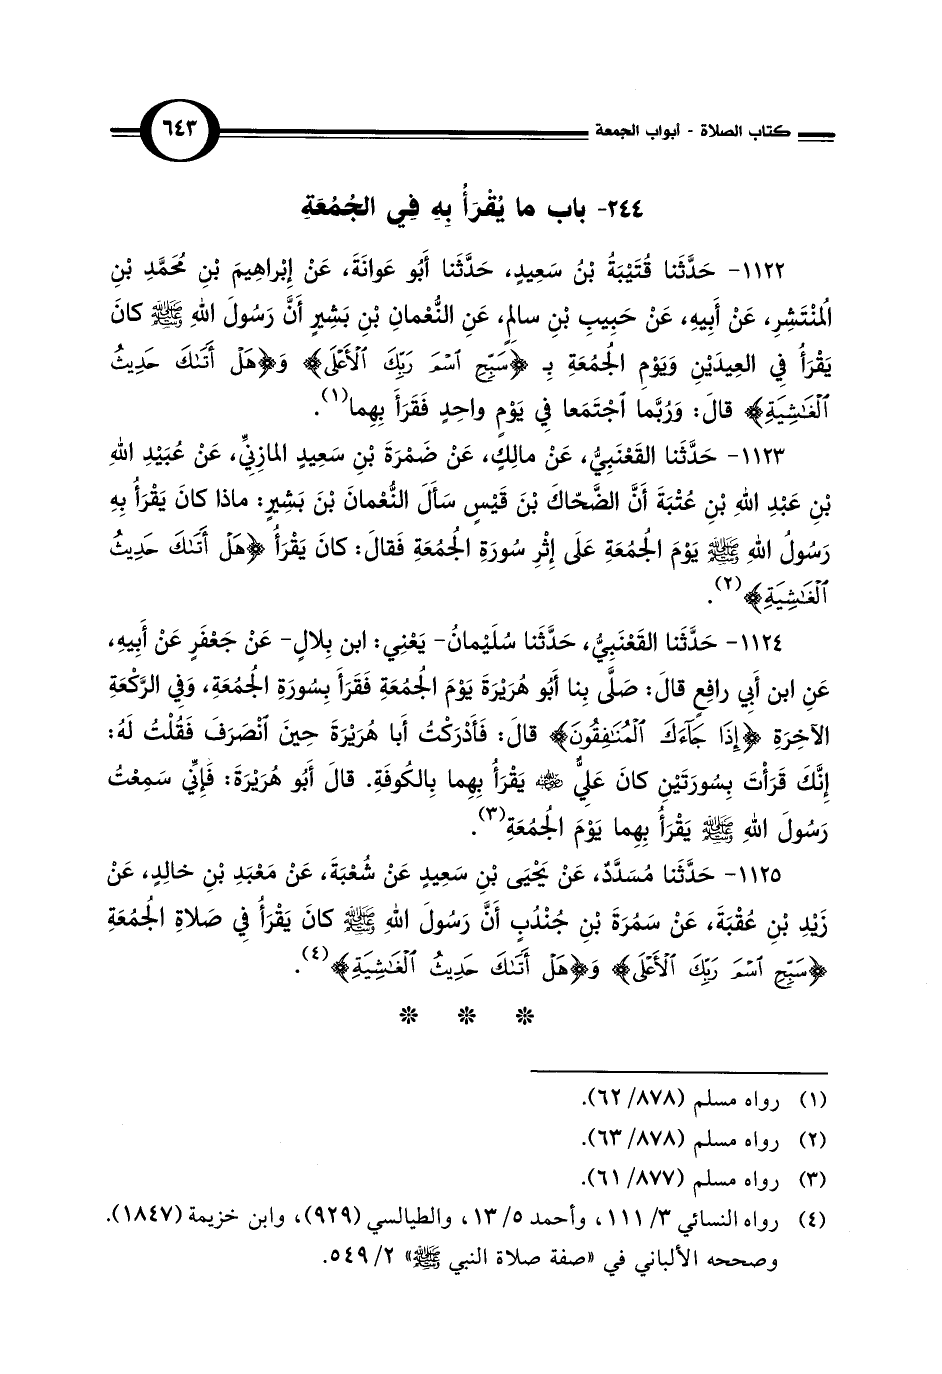 كتاب الصلاة - أبواب الجمعة
٦٤٣
٢٤٤- باب ما يُقْرَأُ بِهِ فِي الجُمُعَةِ
١١٢٢- حَدَّثَنا قُتَيْبَةُ بْنُ سَعِيدٍ، حَدَّثَنا أَبُو عَوانَةَ، عَنْ إِبْراهِيمَ بْنِ مُحَمَّدِ بْنِ
المُنْتَشِرِ، عَنْ أَبِيهِ، عَنْ حَبِيبِ بْنِ سالِمٍ، عَنِ النُّعْمانِ بْنِ بَشِيرٍ أَنَّ رَسُولَ اللهِ ﷺ كانَ
يَقْرَأُ فِي العِيدَيْنِ وَيَوْمِ الجُمُعَةِ بِـ ﴿سَبِّحِ ٱسْمَ رَبِّكَ ٱلْأَعْلَى﴾ وَ﴿هَلْ أَتَىٰكَ حَدِيثُ
ٱلْغَٰشِيَةِ﴾ قالَ: وَرُبَّما ٱجْتَمَعا فِي يَوْمٍ واحِدٍ فَقَرَأَ بِهِما(١).
١١٢٣- حَدَّثَنا القَعْنَبِيُّ، عَنْ مالِكٍ، عَنْ ضَمْرَةَ بْنِ سَعِيدٍ المازِنِيِّ، عَنْ عُبَيْدِ اللهِ
بْنِ عَبْدِ اللهِ بْنِ عُتْبَةَ أَنَّ الضَّحّاكَ بْنَ قَيْسٍ سَأَلَ النُّعْمانَ بْنَ بَشِيرٍ: ماذا كانَ يَقْرَأُ بِهِ
رَسُولُ اللهِ ﷺ يَوْمَ الجُمُعَةِ عَلَى إِثْرِ سُورَةِ الجُمُعَةِ فَقالَ: كانَ يَقْرَأُ ﴿هَلْ أَتَىٰكَ حَدِيثُ
ٱلْغَٰشِيَةِ﴾(٢).
١١٢٤- حَدَّثَنا القَعْنَبِيُّ، حَدَّثَنا سُلَيْمانُ- يَعْنِي: ابن بِلالٍ- عَنْ جَعْفَرٍ عَنْ أَبِيهِ،
عَنِ ابن أَبِي رافِعٍ قالَ: صَلَّى بِنا أَبُو هُرَيْرَةَ يَوْمَ الجُمُعَةِ فَقَرَأَ بِسُورَةِ الجُمُعَةِ، وَفِي الرَّكْعَةِ
الآخِرَةِ ﴿إِذَا جَآءَكَ ٱلْمُنَٰفِقُونَ﴾ قالَ: فَأَدْرَكْتُ أَبا هُرَيْرَةَ حِينَ ٱنْصَرَفَ فَقُلْتُ لَهُ:
إِنَّكَ قَرَأْتَ بِسُورَتَيْنِ كانَ عَلِيٌّ رضي الله عنه يَقْرَأُ بِهِما بِالكُوفَةِ. قالَ أَبُو هُرَيْرَةَ: فَإِنِّي سَمِعْتُ
رَسُولَ اللهِ ﷺ يَقْرَأُ بِهِما يَوْمَ الجُمُعَةِ(٣).
١١٢٥- حَدَّثَنا مُسَدَّدٌ، عَنْ يَحْيَى بْنِ سَعِيدٍ عَنْ شُعْبَةَ، عَنْ مَعْبَدِ بْنِ خالِدٍ، عَنْ
زَيْدِ بْنِ عُقْبَةَ، عَنْ سَمُرَةَ بْنِ جُنْدُبٍ أَنَّ رَسُولَ اللهِ ﷺ كانَ يَقْرَأُ فِي صَلاةِ الجُمُعَةِ
﴿سَبِّحِ ٱسْمَ رَبِّكَ ٱلْأَعْلَى﴾ وَ﴿هَلْ أَتَىٰكَ حَدِيثُ ٱلْغَٰشِيَةِ﴾(٤).
* * *
(١) رواه مسلم (٨٧٨/ ٦٢).
(٢) رواه مسلم (٨٧٨/ ٦٣).
(٣) رواه مسلم (٨٧٧/ ٦١).
(٤) رواه النسائي ٣/ ١١١، وأحمد ٥/ ١٣، والطيالسي (٩٢٩)، وابن خزيمة (١٨٤٧).
وصححه الألباني في «صفة صلاة النبي ﷺ» ٢/ ٥٤٩.